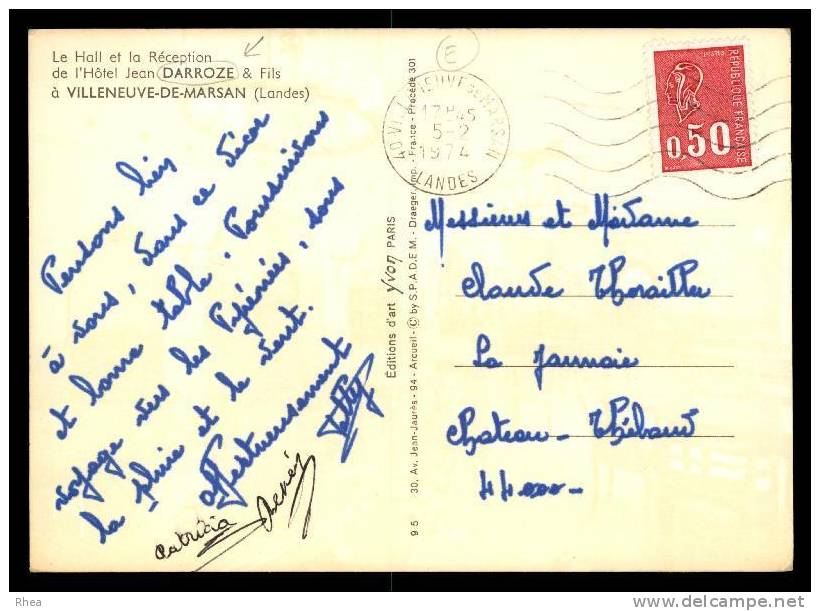 Le Hall et la Réception
de l'Hôtel Jean DARROZE & Fils
à VILLENEUVE-DE-MARSAN (Landes)
Pensons bien
à vous, dans ce décor
et bonne table. Poursuivons
voyage vers les Pyrénées, sous
la pluie et le vent.
Affectueusement
Patricia
Editions d'art yvon PARIS
30, Av. Jean-Jaurès - 94 - Arcueil - © by S.P.A.D.E.M. - Draeger Imp. - France - Procédé 301
95
E
40 VILLENEUVE DE MARSAN
17H45
5-2
1974
LANDES
POSTES
REPUBLIQUE FRANÇAISE
0,50
Messieurs et Madame
Claude
La Jannaie
Chateau-Thébaud
44.000-
Rhea
www.delcampe.net